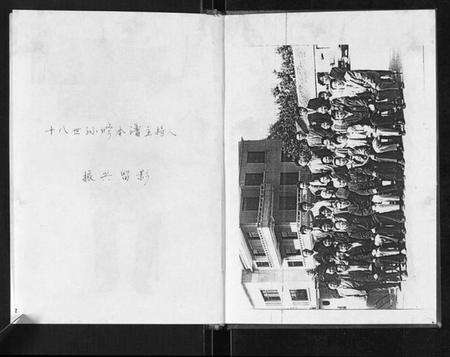 十八世孙修本谱主持人
振兴留影